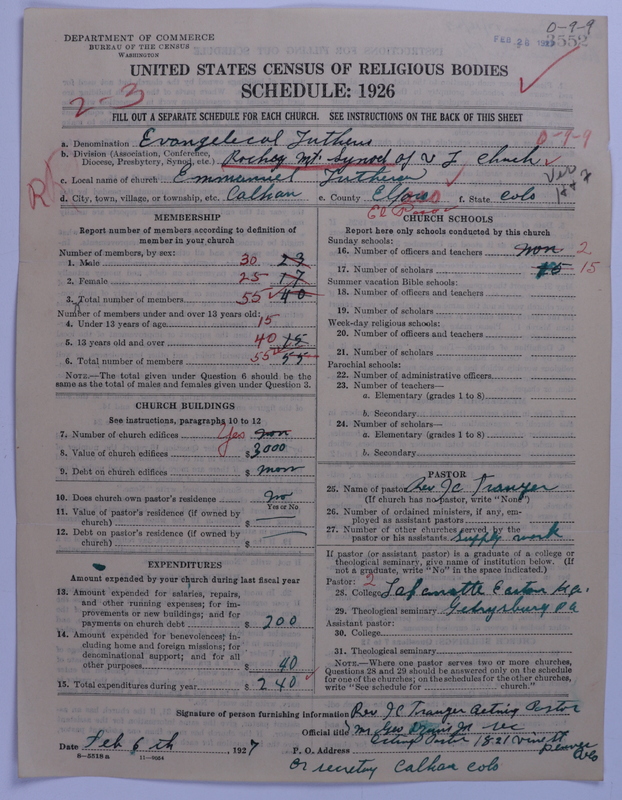 0-9-9
DEPARTMENT OF COMMERCE
BUREAU OF THE CENSUS
WASHINGTON
FEB 28 1927
3552
UNITED STATES CENSUS OF RELIGIOUS BODIES
SCHEDULE: 1926
2-3
FILL OUT A SEPARATE SCHEDULE FOR EACH CHURCH. SEE INSTRUCTIONS ON THE BACK OF THIS SHEET
a. Denomination Evangelical Luthern
0-9-9
b. Division (Association, Conference, Diocese, Presbytery, Synod, etc.) Rockey Mt. Synod of U L Church
c. Local name of church Emmanuel Lutheran
d. City, town, village, or township, etc. Calhan e. County f. State Colo
El Paso
MEMBERSHIP
Report number of members according to definition of
member in your church
Number of members, by sex:
1. Male 30 23
2. Female 25 17
3. Total number of members 55 40
Number of members under and over 13 years old:
4. Under 13 years of age 15
5. 13 years old and over 40 15
6. Total number of members 55 55
NOTE.—The total given under Question 6 should be the
same as the total of males and females given under Question 3.
CHURCH BUILDINGS
See instructions, paragraphs 10 to 12
7. Number of church edifices Yes non
8. Value of church edifices $ 3000
9. Debt on church edifices $ non
10. Does church own pastor's residence no
Yes or No
11. Value of pastor's residence (if owned by
church) $
12. Debt on pastor's residence (if owned by
church) $
EXPENDITURES
Amount expended by your church during last fiscal year
13. Amount expended for salaries, repairs,
and other running expenses; for im-
provements or new buildings; and for
payments on church debt $ 200
14. Amount expended for benevolences, in-
cluding home and foreign missions; for
denominational support; and for all
other purposes $ 40
15. Total expenditures during year $ 240
CHURCH SCHOOLS
Report here only schools conducted by this church
Sunday schools:
16. Number of officers and teachers non 2
17. Number of scholars 15 15
Summer vacation Bible schools:
18. Number of officers and teachers
19. Number of scholars
Week-day religious schools:
20. Number of officers and teachers
21. Number of scholars
Parochial schools:
22. Number of administrative officers
23. Number of teachers—
a. Elementary (grades 1 to 8)
b. Secondary
24. Number of scholars—
a. Elementary (grades 1 to 8)
b. Secondary
PASTOR
25. Name of pastor Rev JC Tranger
(If church has no pastor, write "None")
26. Number of ordained ministers, if any, em-
ployed as assistant pastors
27. Number of other churches served by the
pastor or his assistants Supply work
If pastor (or assistant pastor) is a graduate of a college or
theological seminary, give name of institution below. (If
not a graduate, write "No" in the space indicated.)
Pastor: 2
28. College Lafanette Easton
29. Theological seminary Gettysburg PA
Assistant pastor:
30. College
31. Theological seminary
NOTE.—Where one pastor serves two or more churches,
Questions 28 and 29 should be answered only on the schedule
for one of the churches; on the schedules for the other churches,
write "See schedule for church."
Signature of person furnishing information Rev JC Tranger Acting Pastor
Official title Mr Geo sec
Date Feb 6 th, 1927
P. O. Address Acting Pastor 1821 Vine St
Denver Colo
8-5518 a 11-9054
or secretary Calhan Colo